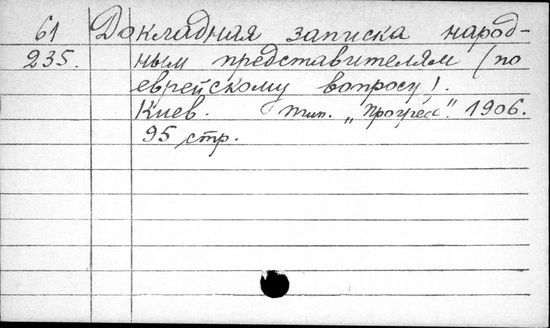 61 Докладная записка народ-
235. ным представителям (по
еврейскому вопросу).
Киев. тип. „Прогресс". 1906.
95 стр.